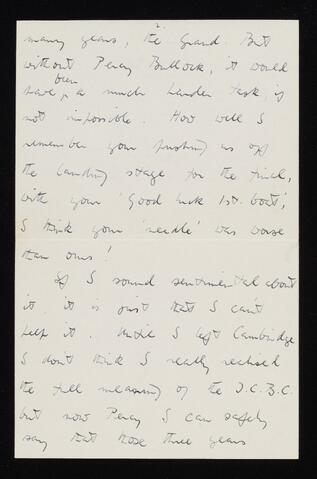 2.
many years, the Grand. But
without Percy Bullock, it would
have been a much harder task, if
not impossible. How well I
remember your pushing us off
the landing stage for the final,
with your 'Good luck 1st. boat';
I think your 'needle' was worse
than ours!
If I sound sentimental about
it, it is just that I can't
help it. Until I left Cambridge
I don't think I really realised
the full meaning of the J.C.B.C.
but now Percy I can safely
say that those three years